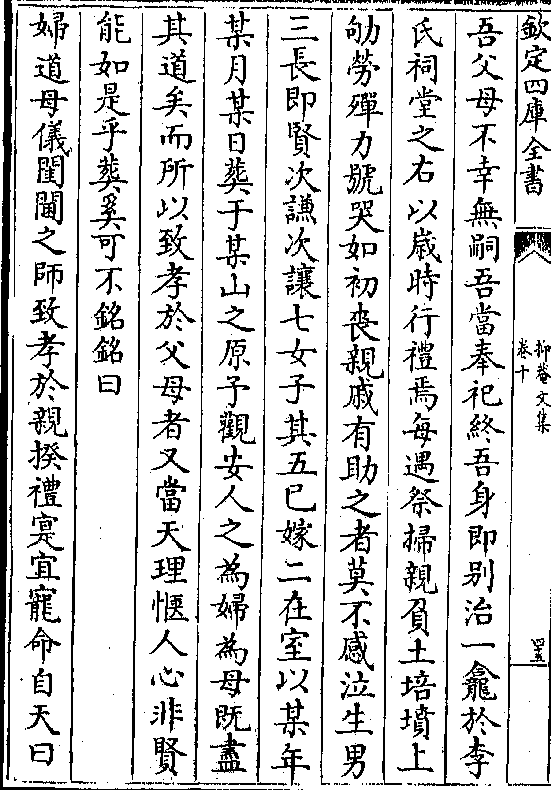 欽定四庫全書
抑菴文集
卷十
四五
吾父母不幸無嗣吾當奉祀終吾身即别治一龕於李
氏祠堂之右以嵗時行禮焉每遇祭掃親負土培墳上
劬勞殫力號哭如初喪親戚有助之者莫不感泣生男
三長即賢次謙次讓七女子其五已嫁二在室以某年
某月某日葬于某山之原予觀安人之為婦為母既盡
其道矣而所以致孝於父母者又當天理愜人心非賢
能如是乎葬奚可不銘銘曰
婦道母儀閨閫之師致孝於親揆禮寔宜寵命自天曰